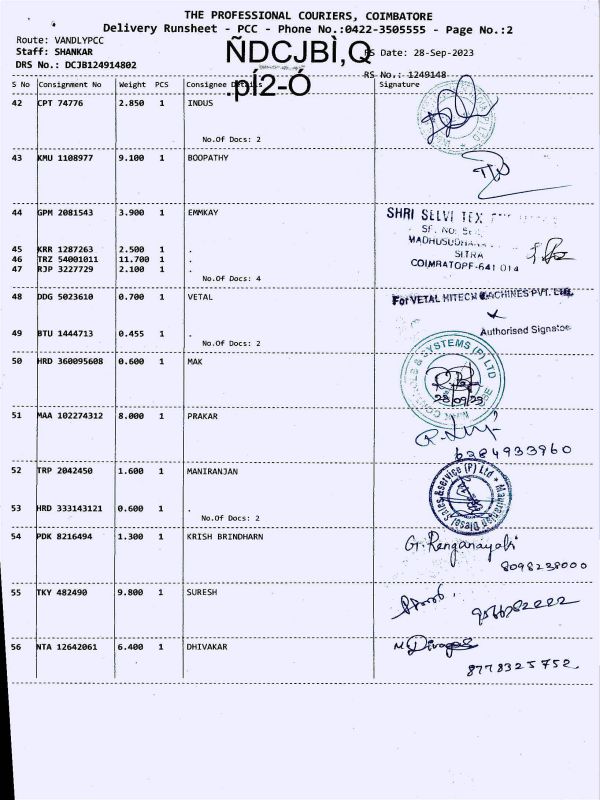 THE PROFESSIONAL COURIERS, COIMBATORE
Delivery Runsheet - PCC - Phone No.:0422-3505555 - Page No.:2
Route: VANDLYPCC
Staff: SHANKAR
RS Date: 28-Sep-2023
DRS No.: DCJB124914802
ÑDCJBÌ,Q
.pÍ2-Ó
RS No.: 1249148
S No Consignment No Weight PCS Consignee Details Signature
42 CPT 74776 2.850 1 INDUS
No.Of Docs: 2
43 KMU 1108977 9.100 1 BOOPATHY
44 GPM 2081543 3.900 1 EMMKAY
SHRI SELVI TEX
SF. NO:
SITRA
COIMBATORE-641 014
45 KRR 1287263 2.500 1 .
46 TRZ 54001011 11.700 1 .
47 RJP 3227729 2.100 1 .
No.Of Docs: 4
48 DDG 5023610 0.700 1 VETAL
For VETAL HITECH MACHINES PVT. LTD.
Authorised Signatoe
49 BTU 1444713 0.455 1 .
No.Of Docs: 2
50 HRD 360095608 0.600 1 MAK
& SYSTEMS (P) LTD
28/09/23
51 MAA 102274312 8.000 1 PRAKAR
6384933960
52 TRP 2042450 1.600 1 MANIRANJAN
Maniranjan Diesel Sales & Service (P) Ltd
53 HRD 333143121 0.600 1 .
No.Of Docs: 2
54 PDK 8216494 1.300 1 KRISH BRINDHARN
G. Renganayaki
8098238000
55 TKY 482490 9.800 1 SURESH
56 NTA 12642061 6.400 1 DHIVAKAR
8778325752